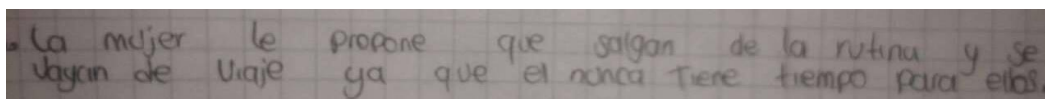 . La mujer le propone que salgan de la rutina y se
vayan de viaje ya que el nunca tiene tiempo para ellos.